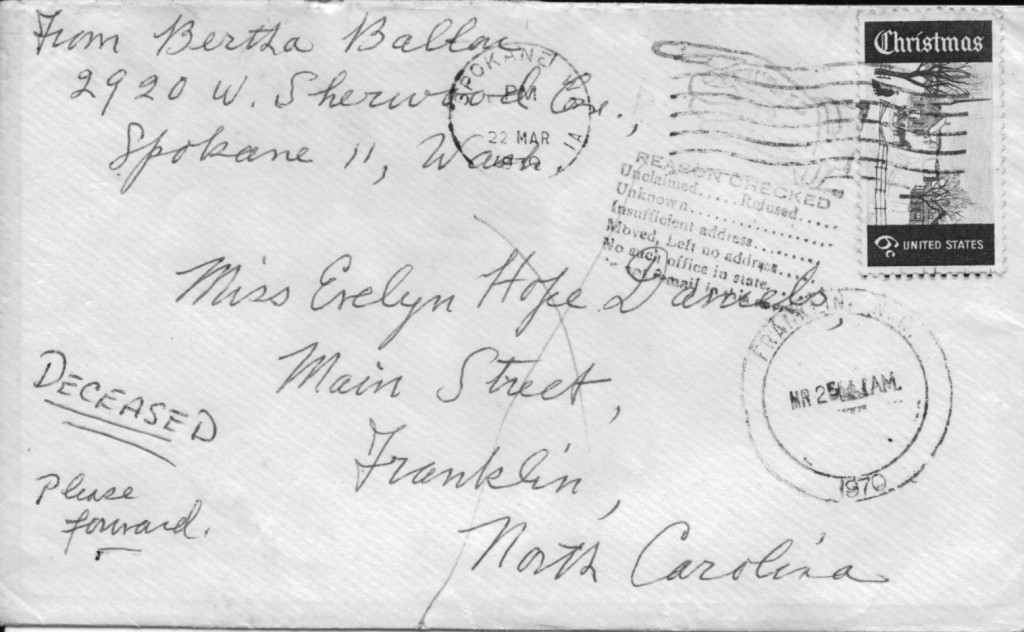 From Bertha Ballou
2920 W. Sherwood Cm.,
Spokane 11, Wash.
SPOKANE
PM
22 MAR
1970
Christmas
6c UNITED STATES
REASON CHECKED
Unclaimed..... Refused....
Unknown..............
Insufficient address.........
Moved, Left no address.....
No such office in state
Miss Evelyn Hope Daniels,
Main Street,
Franklin,
North Carolina
FRANKLIN, N.C.
MR 25 AM.
1970
DECEASED
Please
forward.